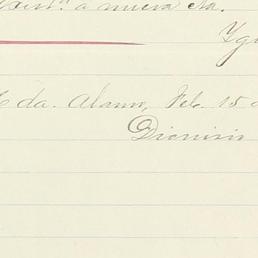 a nueva cta.
Yg
da. Alamo, Feb. 15 d
Dionisio